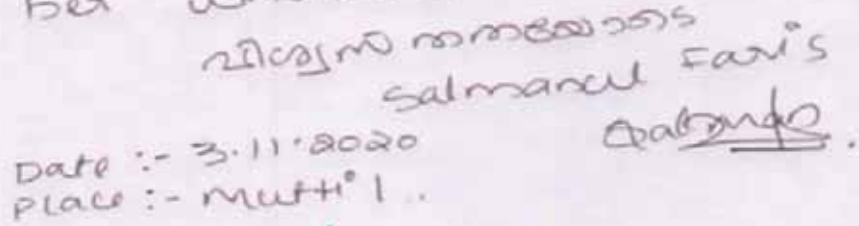 വിശ്വസ്തതയോടെ
Salmanul Faris
Date :- 3.11.2020
Place :- Muttil..